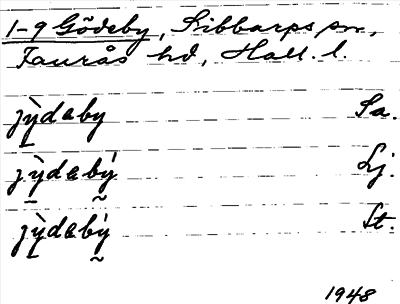 1-9 Gödeby, Sibbarps sn,
Faurås hd, Hall. l.
jỳ̠dɐby Sa.
jỳ̠dɐbý̰ Lj.
jỳ̠dɐbý̰ St.
1948